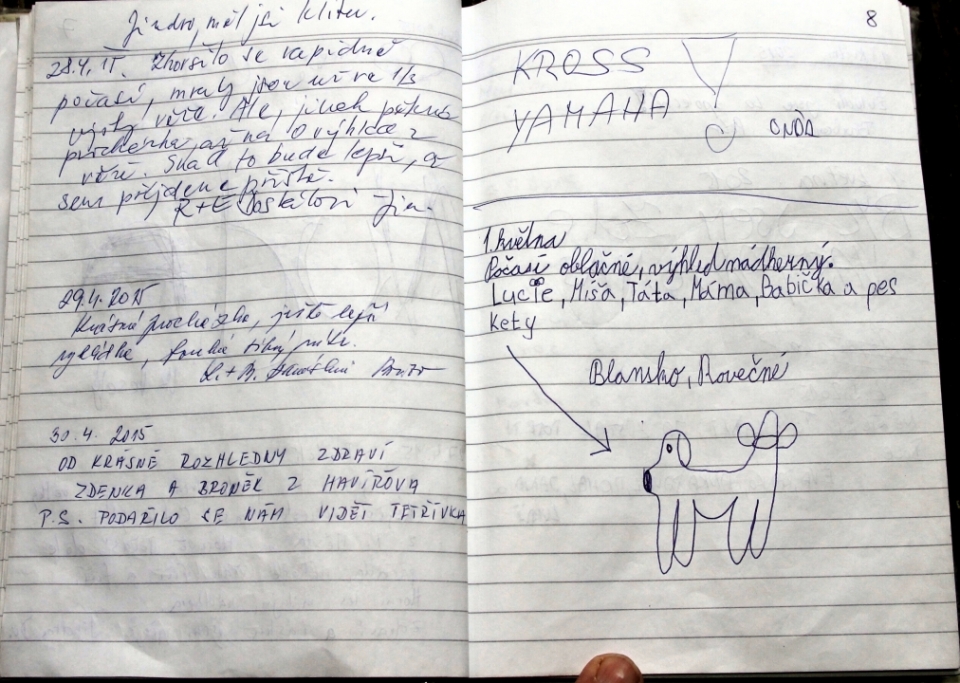 Jindro, měl jsi kliku.
28.4.15. Zhoršilo se rapidně
počasí, mraky jsou už ve 1/3
výšky věže. Ale, jinak pěkná
procházka, až na 0 výhled z
věže. Snad to bude lepší, až
sem přijdeme příště.
R+E
29.4.2015
Krásná procházka, ještě lepší
30.4. 2015
OD KRÁSNÉ ROZHLEDNY ZDRAVÍ
ZDENKA A BRONĚK Z HAVÍŘOVA
P.S. PODAŘILO SE NÁM VIDĚT TETŘÍVKA
8
KROSS
YAMAHA
1.května
Počasí oblačné, výhled nádherný.
Lucie, Míša, Táta, Máma, Babička a pes
Kety
Blansko, Rovečné